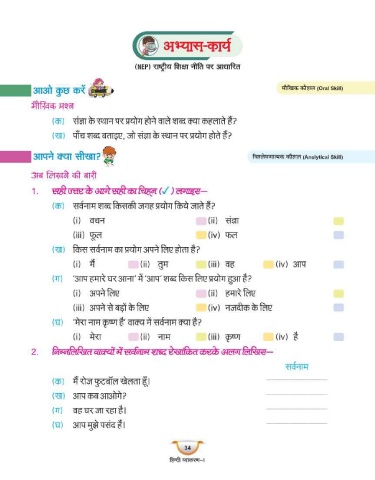 अभ्यास-कार्य
(NEP) राष्ट्रीय शिक्षा नीति पर आधारित
आओ कुछ करें
मौखिक कौशल (Oral Skill)
मौखिक प्रश्न
(क) संज्ञा के स्थान पर प्रयोग होने वाले शब्द क्या कहलाते हैं?
(ख) पाँच शब्द बताइए, जो संज्ञा के स्थान पर प्रयोग होते हैं?
आपने क्या सीखा?
विश्लेषणात्मक कौशल (Analytical Skill)
अब लिखने की बारी
1. सही उत्तर के आगे सही का चिह्न (✓) लगाइए—
(क) सर्वनाम शब्द किसकी जगह प्रयोग किये जाते हैं?
(i) वचन (ii) संज्ञा
(iii) फूल (iv) फल
(ख) किस सर्वनाम का प्रयोग अपने लिए होता है?
(i) मैं (ii) तुम (iii) वह (iv) आप
(ग) 'आप हमारे घर आना' में 'आप' शब्द किस लिए प्रयोग हुआ है?
(i) अपने लिए (ii) हमारे लिए
(iii) अपने से बड़ों के लिए (iv) नजदीक के लिए
(घ) 'मेरा नाम कृष्ण है' वाक्य में सर्वनाम क्या है?
(i) मेरा (ii) नाम (iii) कृष्ण (iv) है
2. निम्नलिखित वाक्यों में सर्वनाम शब्द रेखांकित करके अलग लिखिए—
सर्वनाम
(क) मैं रोज फुटबॉल खेलता हूँ।
(ख) आप कब आओगे?
(ग) वह घर जा रहा है।
(घ) आप मुझे पसंद हैं।
34
हिन्दी व्याकरण-1